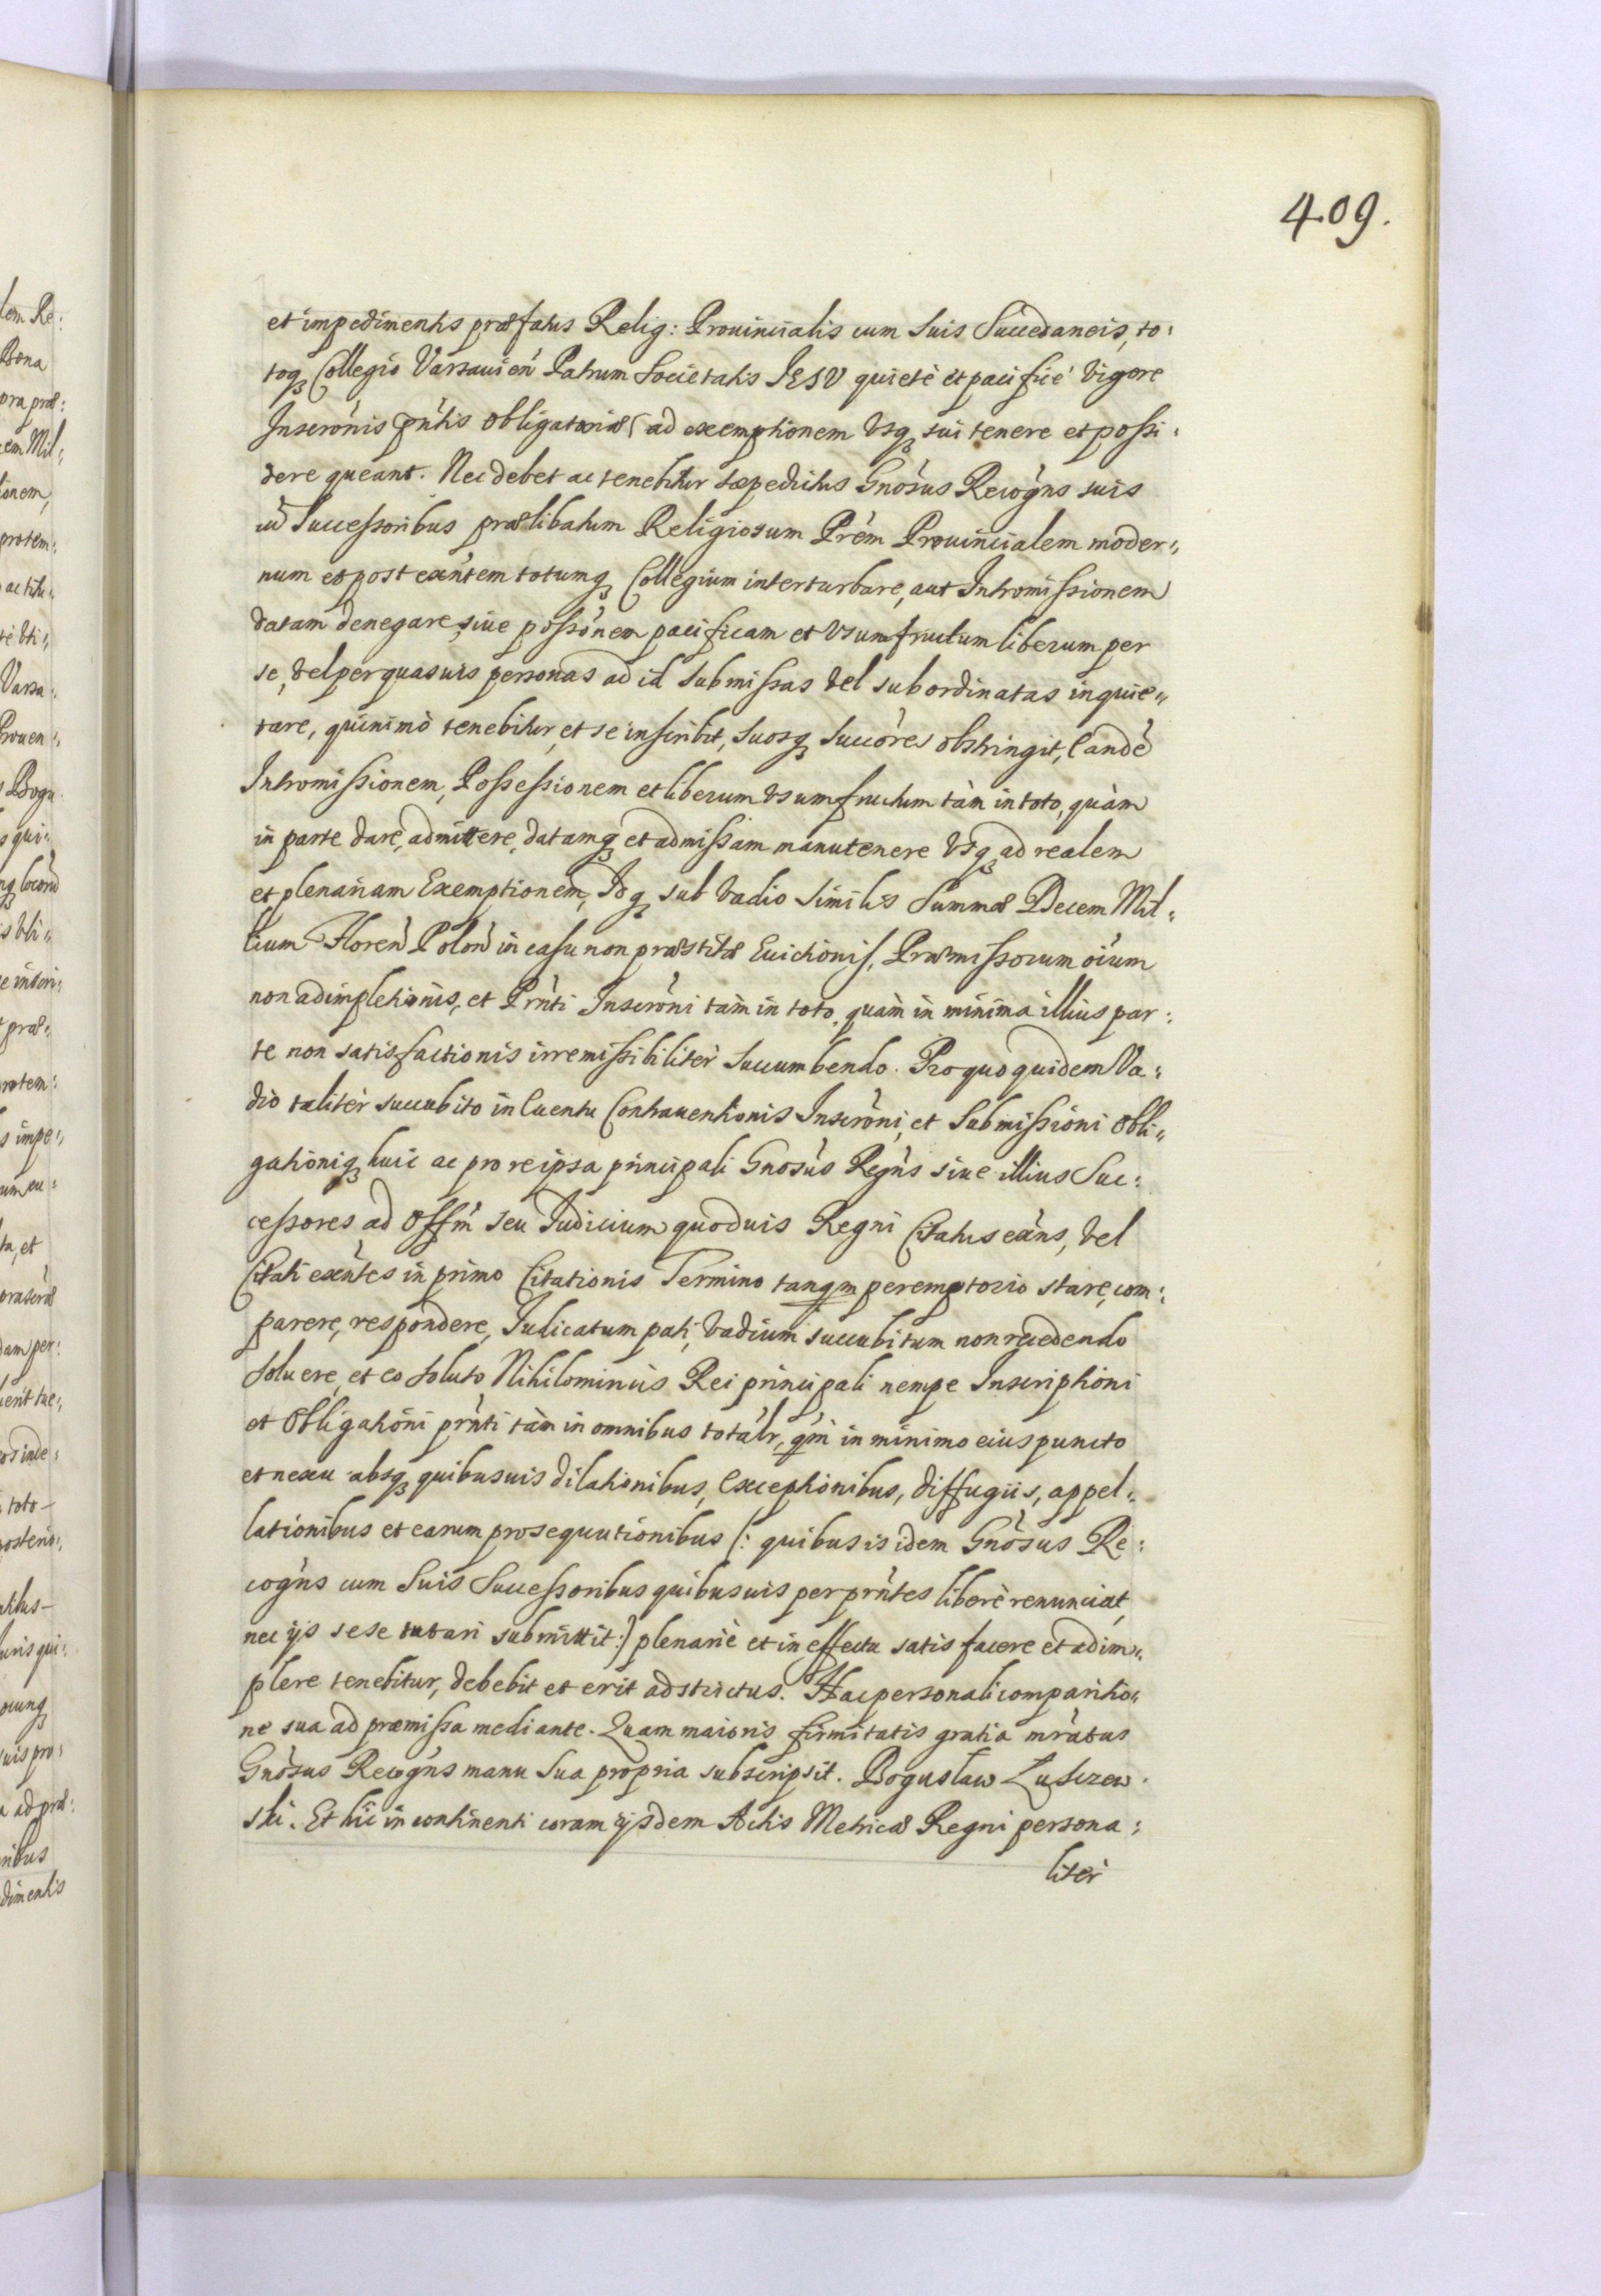 409.
et impedimentis præfatus Relig: Prouincialis cum suis Succedaneis, to:
toq3 Collegio Varsauień Patrum Societatis IESV quietè et pacificè vigore
Inscrónis pńtis obligatoriæ ad exemptionem vsq3 sui tenere et possi:
dere queant. Nec debet ac tenebitur sæpedictus Gnósus Recógns suis
cū Successoribus prælibatum Religiosum Prém Prouincialem moder:,
num et post exńtem totumq3 Collegium interturbare, aut Intromissionem
datam denegare, siue possónem pacificam et vsumfructum liberum per
se, vel per quasuis personas ad id submissas vel subordinatas inquie:,
tare, quinimò tenebitur, et se inscribit, suosq3 succóres obstringit, eandē
Intromissionem, Possessionem et liberum vsumfructum tàm in toto, quàm
in parte dare, admittere, datamq3 et admissam manutenere vsq3 ad realem
et plenariam Exemptionem, Idq3 sub vadio similis Summæ Decem Mil:
lium Floreń Poloń in casu non præstitæ Euictionis, Præmissorum oíum
non adimpletionis, et Prńti Inscróni tàm in toto, quàm in minima illius par:
te non satisfactionis irremissibiliter succumbendo. Pro quo quidem Va:
dio taliter succubito in Euentu Contrauentionis Inscróni, et Submissioni Obli:,
gationiq3 huic ac pro re ipsa principali Gnosús Regńs siue illius Suc:
cessores ad Offḿ seu Iudicium quoduis Regni Citatus exńs, vel
Citati exńtes in primo Citationis Termino tanqm peremptorio stare, com:,
parere, respondere, Iudicatum pati, vadium succubitum non recedendo
soluere, et eo soluto Nihilominus Rei principali nempe Inscriptioni
et Obligatióni prńti tàm in omnibus totálr, qḿ in minimo eius puncto
et nexu absq3 quibusuis dilationibus, exceptionibus, diffugiis, appel:,
lationibus et earum prosequutionibus (: quibus is idem Gnósus Re:
cogńs cum suis Successoribus quibusuis per prńtes liberè renunciat,
nec ijs sese tutari submittit:) plenariè et in effectu satisfacere et adim:,
plere tenebitur, debebit et erit adstrictus. Hac personali comparitio:,
ne sua ad præmissa mediante. Quam maioris firmitatis gratia mrátus
Gnósus Recógns manu sua propria subscripsit. Bogusław Luszczew
ski. Et hîc in continenti coram ijsdem Actis Metricæ Regni persona:
liter